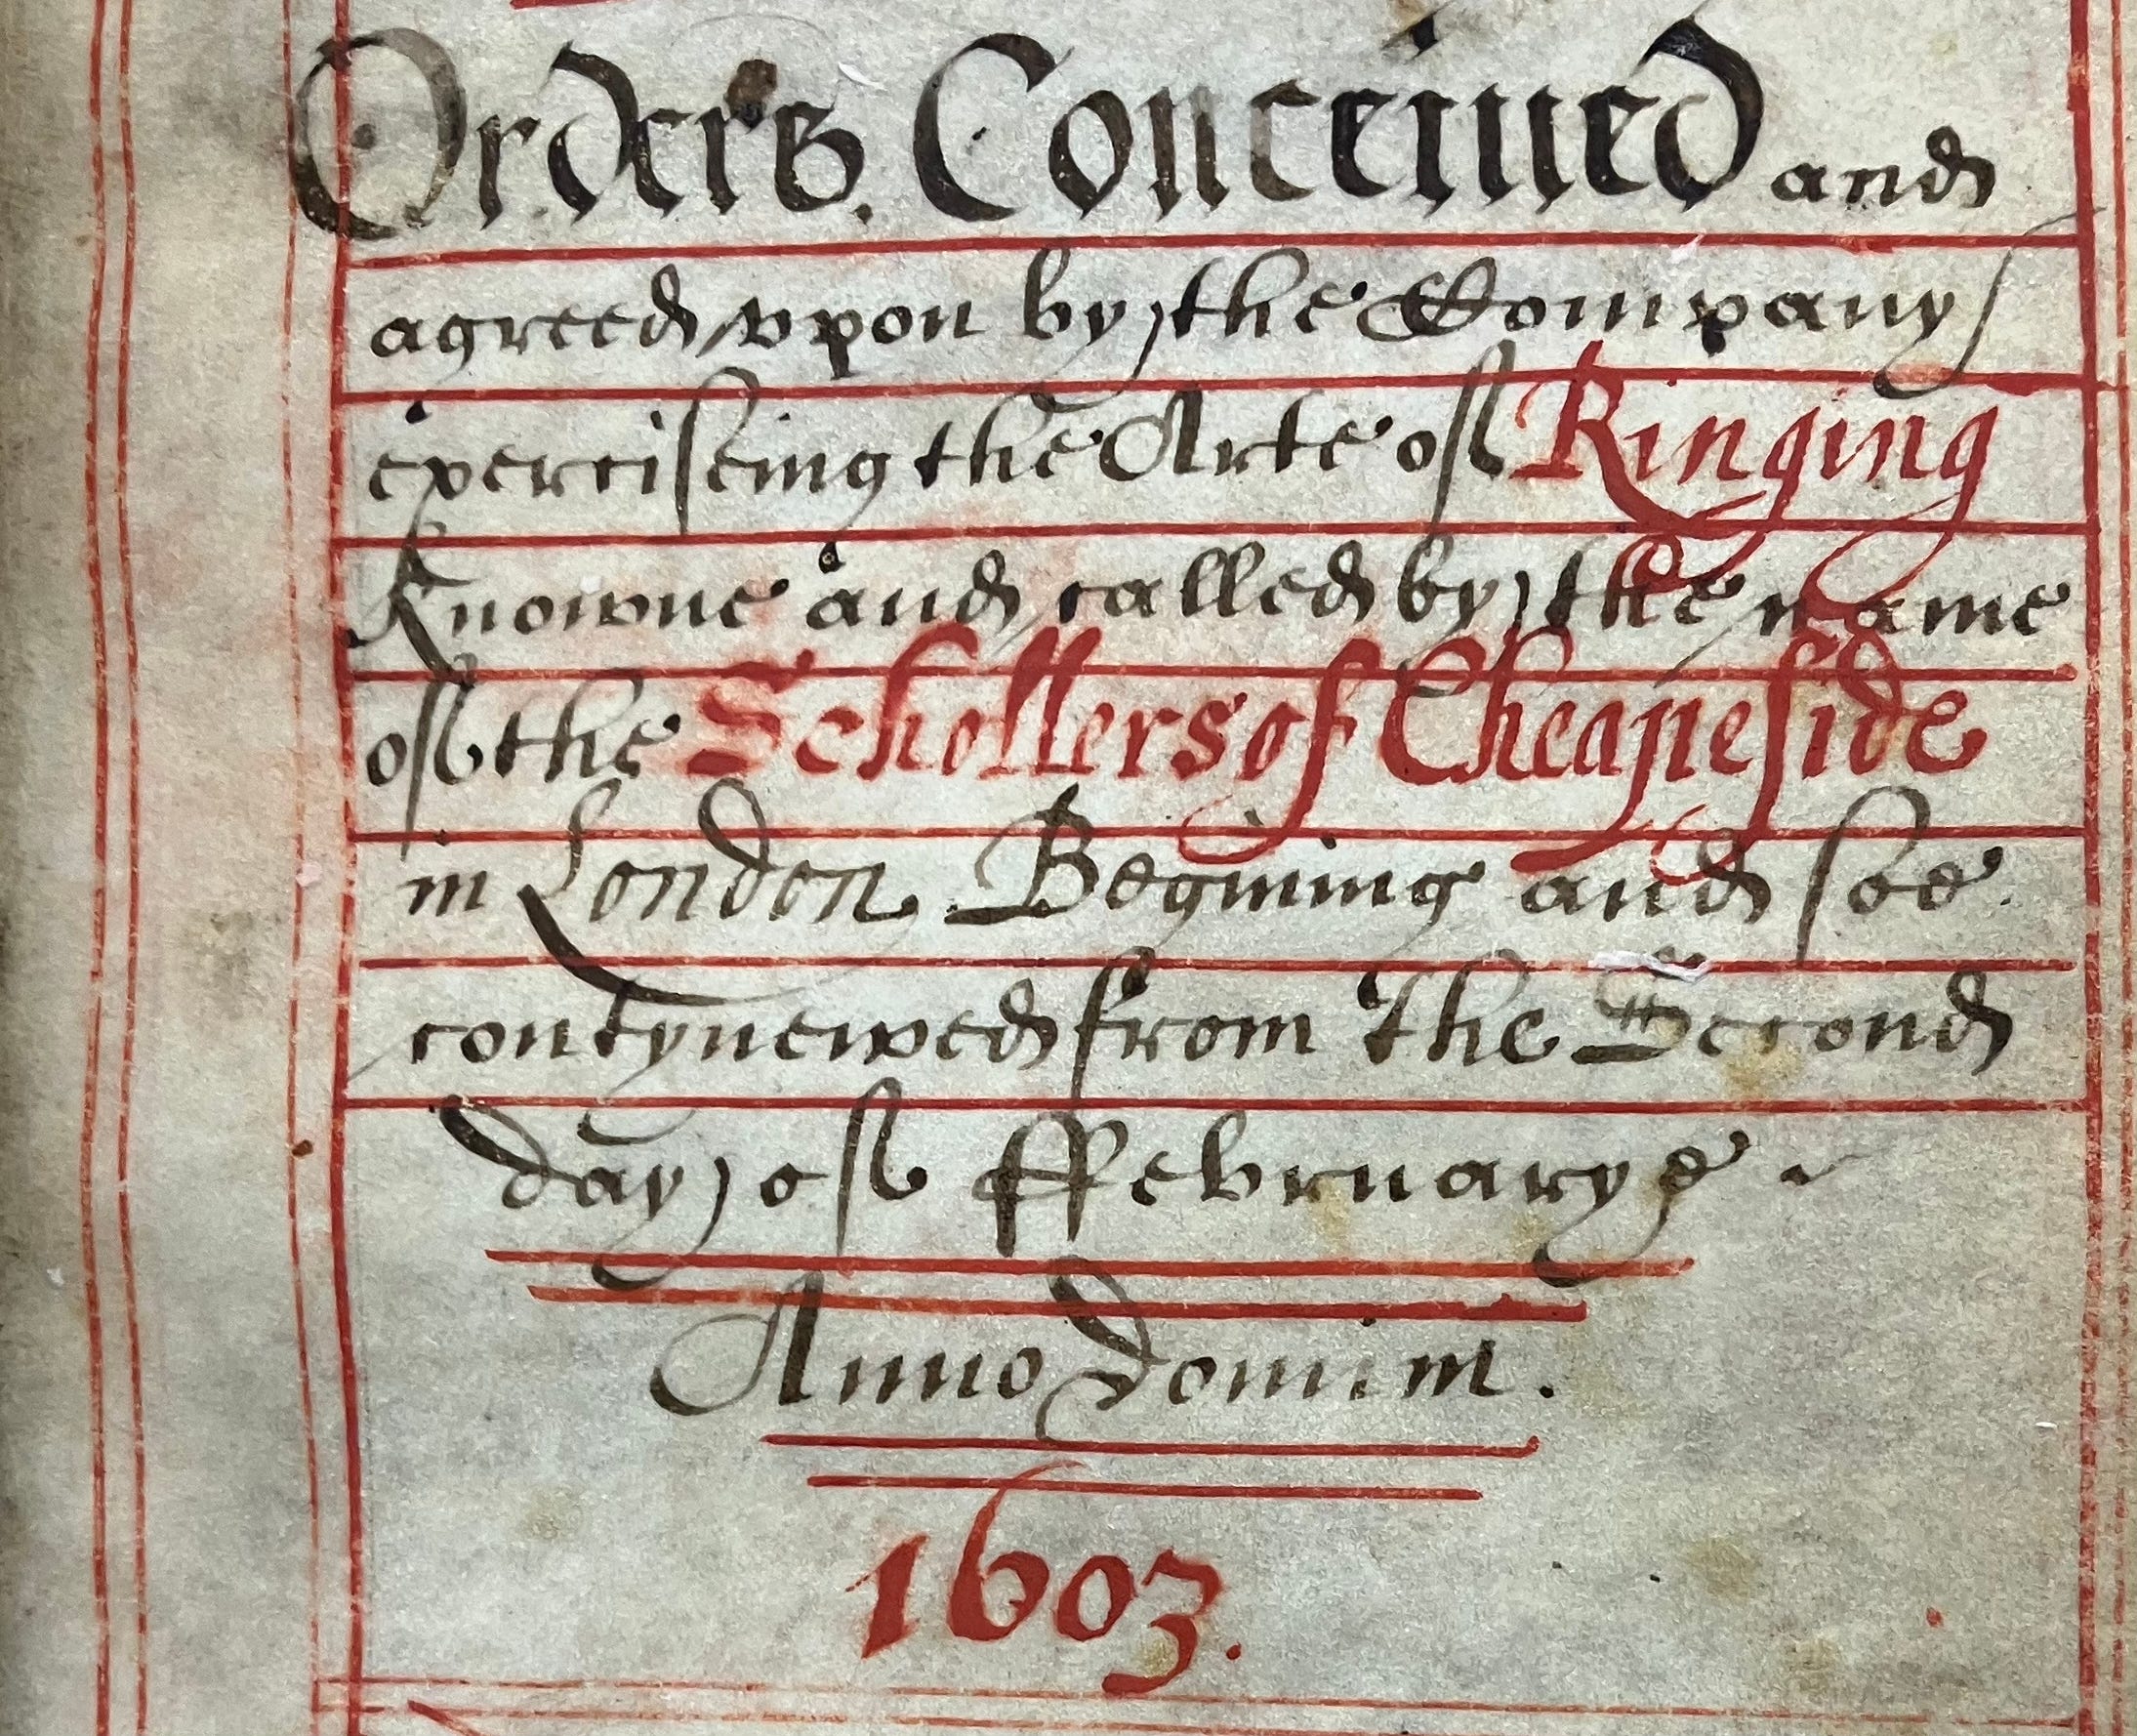 Orders. Conceiued and
agreed vpon by the Company
exerciseing the Arte of Ringing
Knowne and called by the name
of the Schollers of Cheapeside
in London Begining and soe
contynewed from the Second
day of ffebruarye
Anno domini.
1603.